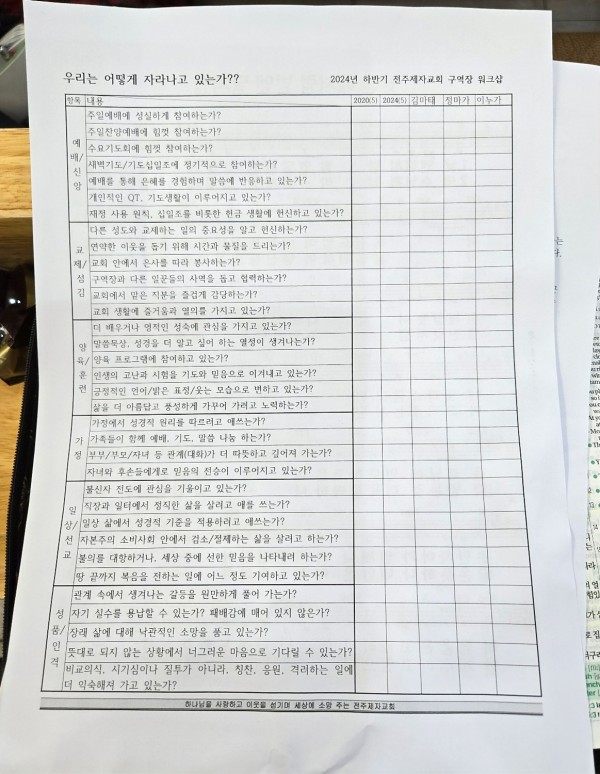 우리는 어떻게 자라나고 있는가??
2024년 하반기 전주제자교회 구역장 워크샵
항목 내용 2020(5) 2024(5) 김마태 정마가 이누가
예배/신앙
주일예배에 성실하게 참여하는가?
주일찬양예배에 힘껏 참여하는가?
수요기도회에 힘껏 참여하는가?
새벽기도/기도십일조에 정기적으로 참여하는가?
예배를 통해 은혜를 경험하며 말씀에 반응하고 있는가?
개인적인 QT, 기도생활이 이루어지고 있는가?
재정 사용 원칙, 십일조를 비롯한 헌금 생활에 헌신하고 있는가?
교제/섬김
다른 성도와 교제하는 일의 중요성을 알고 헌신하는가?
연약한 이웃을 돕기 위해 시간과 물질을 드리는가?
교회 안에서 은사를 따라 봉사하는가?
구역장과 다른 일꾼들의 사역을 돕고 협력하는가?
교회에서 맡은 직분을 즐겁게 감당하는가?
교회 생활에 즐거움과 열의를 가지고 있는가?
양육/훈련
더 배우거나 영적인 성숙에 관심을 가지고 있는가?
말씀묵상, 성경을 더 알고 싶어 하는 열정이 생겨나는가?
양육 프로그램에 참여하고 있는가?
인생의 고난과 시험을 기도와 믿음으로 이겨내고 있는가?
긍정적인 언어/밝은 표정/웃는 모습으로 변하고 있는가?
삶을 더 아름답고 풍성하게 가꾸어 가려고 노력하는가?
가정
가정에서 성경적 원리를 따르려고 애쓰는가?
가족들이 함께 예배, 기도, 말씀 나눔 하는가?
부부/부모/자녀 등 관계(대화)가 더 따뜻하고 깊어져 가는가?
자녀와 후손들에게로 믿음의 전승이 이루어지고 있는가?
일상/선교
불신자 전도에 관심을 기울이고 있는가?
직장과 일터에서 정직한 삶을 살려고 애를 쓰는가?
일상 삶에서 성경적 기준을 적용하려고 애쓰는가?
자본주의 소비사회 안에서 검소/절제하는 삶을 살려고 하는가?
불의를 대항하거나, 세상 중에 선한 믿음을 나타내려 하는가?
땅 끝까지 복음을 전하는 일에 어느 정도 기여하고 있는가?
성품/인격
관계 속에서 생겨나는 갈등을 원만하게 풀어 가는가?
자기 실수를 용납할 수 있는가? 패배감에 매어 있지 않은가?
장래 삶에 대해 낙관적인 소망을 품고 있는가?
뜻대로 되지 않는 상황에서 너그러운 마음으로 기다릴 수 있는가?
비교의식, 시기심이나 질투가 아니라, 칭찬, 응원, 격려하는 일에
더 익숙해져 가고 있는가?
하나님을 사랑하고 이웃을 섬기며 세상에 소망 주는 전주제자교회